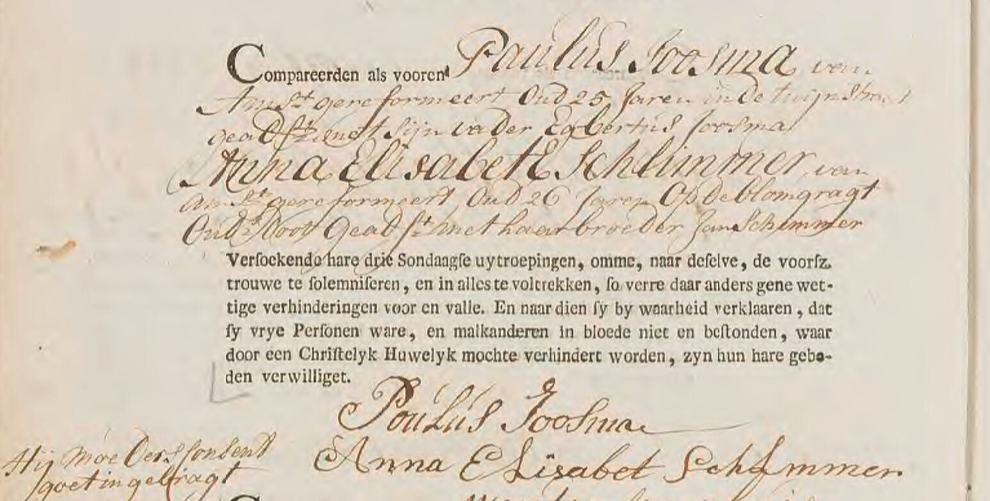 Compareerden als vooren Paulus Joosma van
Amst gereformeert Oud 25 Jaren in de twijnstraet
geadst met sijn vader Egbertus Joosma
Anna Elisabeth Schlimmer, van
Amst gereformeert Oud 26 Jaren Op de blomgragt
Ouds Doot Geadst met haar broeder Jan Schimmer
Versoekende hare drie Sondaagse uytroepingen, omme, naar deselve, de voorsz.
trouwe te solemniseren, en in alles te voltrekken, so verre daar anders gene wet-
tige verhinderingen voor en valle. En naar dien sy by waarheid verklaaren, dat
sy vrye Personen ware, en malkanderen in bloede niet en bestonden, waar
door een Christelyk Huwelyk mochte verhindert worden, zyn hun hare gebo-
den verwilliget.
Poulus Joosma
Anna Elisabet Schlimmer
Hij Moeders Consent
goet ingebragt